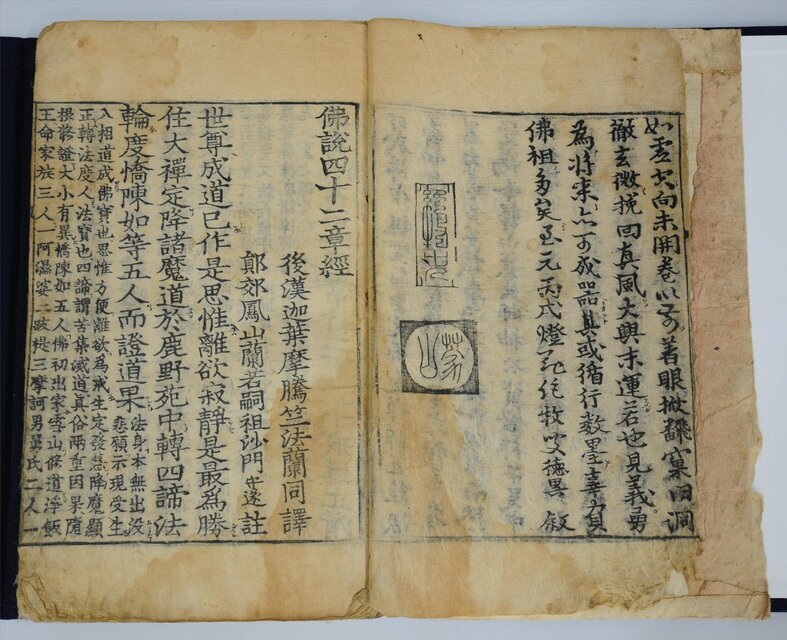 如虛空向未開卷以前著眼掀翻窠臼洞
徹玄微挽回真風大興末運若也見義勇
為將來亦可成器其或循行数墨辜負
佛祖多矣至元丙戌燈 叟德異敘
蒙山
佛說四十二章經
後漢迦葉摩騰竺法蘭同譯
鄭郊鳳山蘭若嗣祖沙門守遂註
世尊成道已作是思惟離欲寂靜是最為勝
住大禪定降諸魔道於鹿野苑中轉四諦法
輪度憍陳如等五人而證道果
法身本無出沒
悲願示現受生
八相道成佛寶也思惟方便離欲為戒生定發慧降魔顯
正轉法度人法寶也四諦謂苦集滅道真俗兩重因果隨
根悟證大小有異憍陳如五人佛初出家雪山修道淨飯
王命家族三人一阿濕婆二跋提三摩訶男舅氏二人一